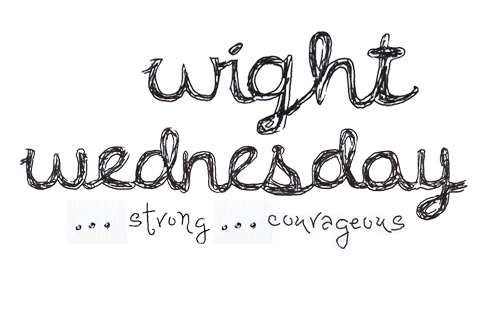 wight
wednesday
... strong ... courageous